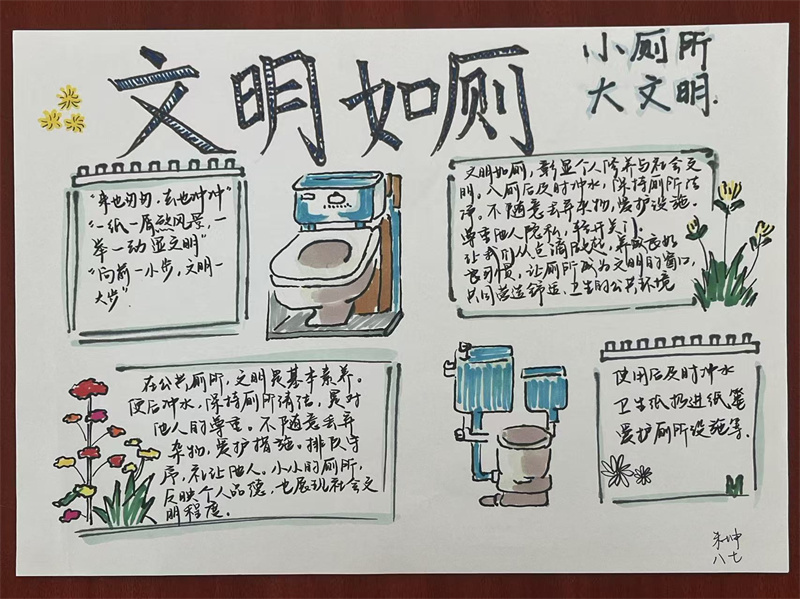 文明如厕
小厕所
大文明.
"来也匆匆,去也冲冲"
"一纸一屑煞风景,一
举一动显文明"
"向前一小步,文明一
大步".
文明如厕,彰显个人修养与社会文
明。入厕后及时冲水,保持厕所洁
净。不随意丢弃杂物,爱护设施.
尊重他人隐私,轻开关门.
让我们从点滴做起,养成良好
习惯,让厕所成为文明的窗口,
共同营造舒适、卫生的公共环境
在公共厕所,文明是基本素养。
便后冲水,保持厕所清洁,是对
他人的尊重。不随意丢弃
杂物,爱护措施。排队守
序,礼让他人。小小的厕所,
反映个人品德,也展现社会文
明程度。
使用后及时冲水
卫生纸扔进纸篓
爱护厕所设施等.
朱坤
八七